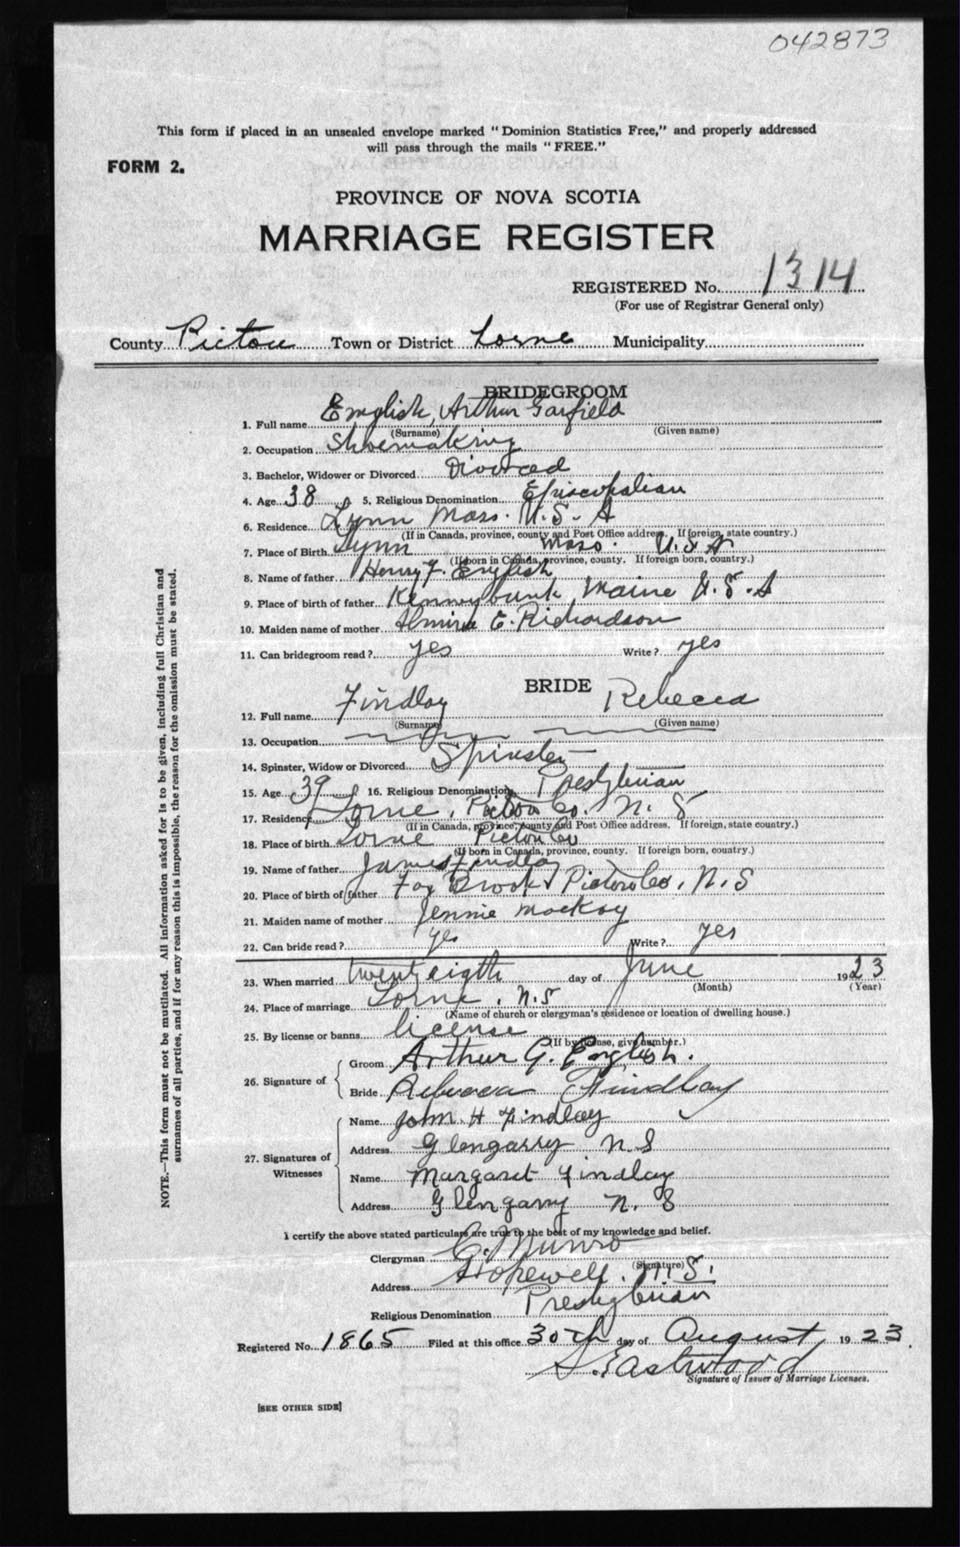 042873
This form if placed in an unsealed envelope marked "Dominion Statistics Free," and properly addressed
will pass through the mails "FREE."
FORM 2.
PROVINCE OF NOVA SCOTIA
MARRIAGE REGISTER
REGISTERED No. 1314
(For use of Registrar General only)
County Pictou Town or District Lorne Municipality
BRIDEGROOM
1. Full name English, Arthur Garfield
(Surname) (Given name)
2. Occupation Shoemaking
3. Bachelor, Widower or Divorced Divorced
4. Age 38 5. Religious Denomination Episcopalian
6. Residence Lynn Mass. U.S.A
(If in Canada, province, county and Post Office address. If foreign, state country.)
7. Place of Birth Lynn Mass. U.S.A
(If born in Canada, province, county. If foreign born, country.)
8. Name of father Henry F. English
9. Place of birth of father Kennybunk Maine U.S.A
10. Maiden name of mother E. Richardson
11. Can bridegroom read? yes Write? yes
BRIDE
12. Full name Findlay Rebecca
(Surname) (Given name)
13. Occupation
14. Spinster, Widow or Divorced Spinster
15. Age 39 16. Religious Denomination Presbyterian
17. Residence Lorne, Pictou Co. N. S
(If in Canada, province, county and Post Office address. If foreign, state country.)
18. Place of birth Lorne Pictou Co
(If born in Canada, province, county. If foreign born, country.)
19. Name of father James Findlay
20. Place of birth of father Fox Brook Pictou Co. N. S
21. Maiden name of mother Jennie MacKay
22. Can bride read? yes Write? yes
23. When married twenty eigth day of June 1923
(Month) (Year)
24. Place of marriage Lorne, N.S
(Name of church or clergyman's residence or location of dwelling house.)
25. By license or banns license
(If by license, give number.)
26. Signature of
Groom Arthur G. English.
Bride Rebecca Findlay
27. Signatures of Witnesses
Name John H Findlay
Address Glengarry N S
Name Margaret Findlay
Address Glengarry N. S
I certify the above stated particulars are true to the best of my knowledge and belief.
Clergyman C. Munro
(Signature)
Address Hopewell. N.S.
Religious Denomination Presbyterian
Registered No. 1865 Filed at this office 30th day of August 1923
S. Eastwood
Signature of Issuer of Marriage Licenses.
[SEE OTHER SIDE]
NOTE.—This form must not be mutilated. All information asked for is to be given, including full Christian and
surnames of all parties, and if for any reason this is impossible, the reason for the omission must be stated.